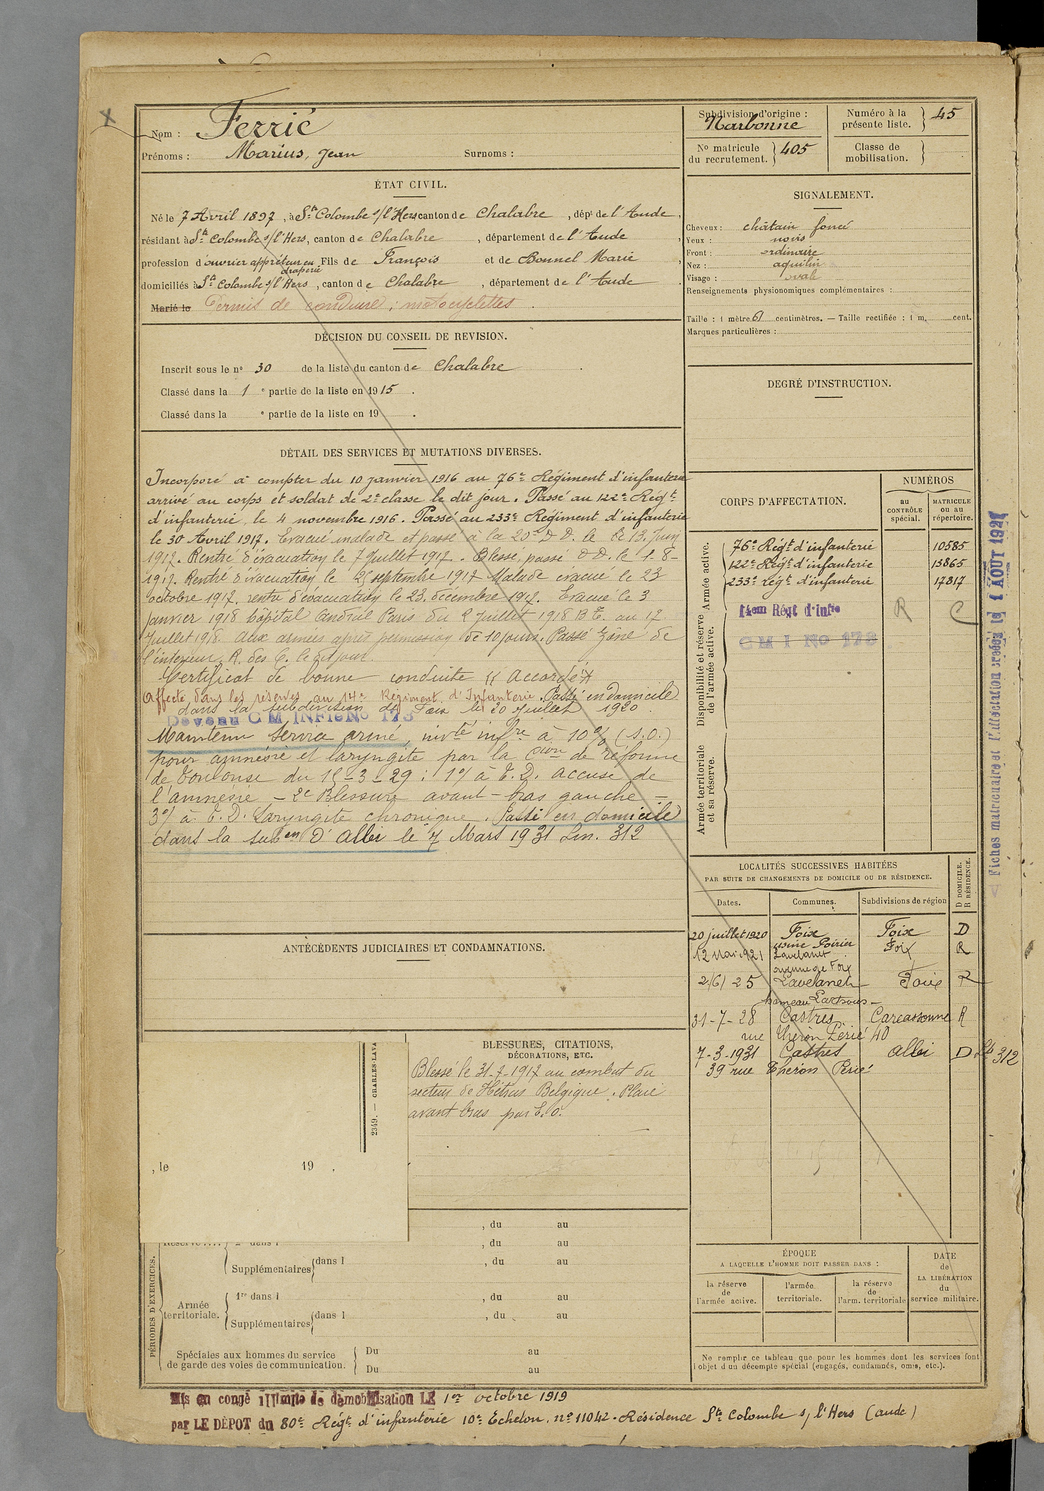 Nom : Ferrié
Prénoms : Marius, Jean Surnoms :
Subdivision d'origine : Narbonne
Numéro à la présente liste. 45
No matricule du recrutement. 405
Classe de mobilisation.
ÉTAT CIVIL.
Né le 7 Avril 1897, à Ste Colombe s/l'Hers canton de Chalabre, dépt de l'Aude,
résidant à Ste Colombe s/l'Hers, canton de Chalabre, département de l'Aude
profession d'ouvrier appréteur en draperie Fils de François et de Bonnel Marie
domiciliés à Ste Colombe s/l'Hers, canton de Chalabre, département de l'Aude
Marié le Permis de conduire, motocyclettes
SIGNALEMENT.
Cheveux : châtain foncé
Yeux : noirs
Front : ordinaire
Nez : aquilin
Visage : ovale
Renseignements physionomiques complémentaires :
Taille : 1 mètre 61 centimètres. — Taille rectifiée : 1 m. cent.
Marques particulières :
DÉCISION DU CONSEIL DE REVISION.
Inscrit sous le no 30 de la liste du canton de Chalabre
Classé dans la 1 e partie de la liste en 1915.
Classé dans la e partie de la liste en 19 .
DEGRÉ D'INSTRUCTION.
DÉTAIL DES SERVICES ET MUTATIONS DIVERSES.
Incorporé à compter du 10 janvier 1916 au 76e Régiment d'infanterie
arrivé au corps et soldat de 2e classe le dit jour. Passé au 122e Régt
d'infanterie, le 4 novembre 1916. Passé au 233e Régiment d'infanterie
le 30 Avril 1917. Evacué malade et passé à la 20e D D. le 13 Juin
1917. Rentré d'évacuation le 7 Juillet 1917. Blessé, passé D D. le 1-8-
1917. Rentré d'évacuation le septembre 1917 Malade évacué le 23
octobre 1917. rentré d'évacuation le 23 décembre 1917. Evacué le 3
janvier 1918 hôpital Andral Paris du 2 juillet 1918 au 17
Juillet 1918. Aux armées après permission de 10 jours. Passé Zône de
l'intérieur, R. des C. le dit jour
Certificat de bonne conduite "Accordé"
Affecté dans les réserves au 14e Régiment d'Infanterie. Passé en Domicile
dans la subdivision de Foix le 20 Juillet 1920.
Devenu C M INFIE No 173
Maintenu Service armé, invté infre à 10% (S.O.)
pour amnésie et laryngite par la Cion de réforme
de Toulouse du 15-3-29 : 1o/ à T.D. accuse de
l'amnésie - 2o Blessure avant-bras gauche =
3o/ à T.D. laryngite chronique. Passé en domicile
dans la subon d'Albi le 7 Mars 1931 Lm. 312
CORPS D'AFFECTATION.
NUMÉROS
au CONTRÔLE spécial.
MATRICULE ou au répertoire.
Armée active.
76e Régt d'infanterie 10585
122e Régt d'infanterie 13865
233e Régt d'infanterie 17817
Disponibilité et réserve de l'armée active.
14em Régt d'Infie R C
C M I No 173
Armée territoriale et sa réserve.
Fiches matriculaire et d'affectation créées le 4 AOUT 1927
LOCALITÉS SUCCESSIVES HABITÉES
PAR SUITE DE CHANGEMENTS DE DOMICILE OU DE RÉSIDENCE.
Dates. Communes. Subdivisions de région D DOMICILE. R RÉSIDENCE.
20 juillet 1920 Foix Foix D
12 Mai 1921 usine Poirier Lavelanet Foix R
2/6/25 avenue de Foix Lavelanet Foix R
hameau
31-7-28 Castres Carcassonne R
rue Théron Périé 40
7-3-1931 Castres Albi D 312
39 rue Théron Périé
ANTÉCÉDENTS JUDICIAIRES ET CONDAMNATIONS.
BLESSURES, CITATIONS,
DÉCORATIONS, ETC.
Blessé le 31-7-1917 au combat du
secteur de Hétsas Belgique. Plaie
avant bras par E.O.
2349. — CHARLES-LAVA
, le 19 .
PÉRIODES D'EXERCICES.
, du au
, du au
Supplémentaires dans l , du au
Armée territoriale.
1re dans l , du au
Supplémentaires dans l , du au
Spéciales aux hommes du service
de garde des voies de communication.
Du au
Du au
ÉPOQUE
A LAQUELLE L'HOMME DOIT PASSER DANS :
la réserve de l'armée active.
l'armée territoriale.
la réserve de l'arm. territoriale
DATE de LA LIBÉRATION du service militaire.
Ne remplir ce tableau que pour les hommes dont les services font
l'objet d'un décompte spécial (engagés, condamnés, omis, etc.).
Mis en congé illimité de démobilisation LE 1er octobre 1919
par LE DÉPOT du 80e Régt d'infanterie 10e Echelon, no 11042 - Résidence Ste Colombe s/l'Hers (Aude)